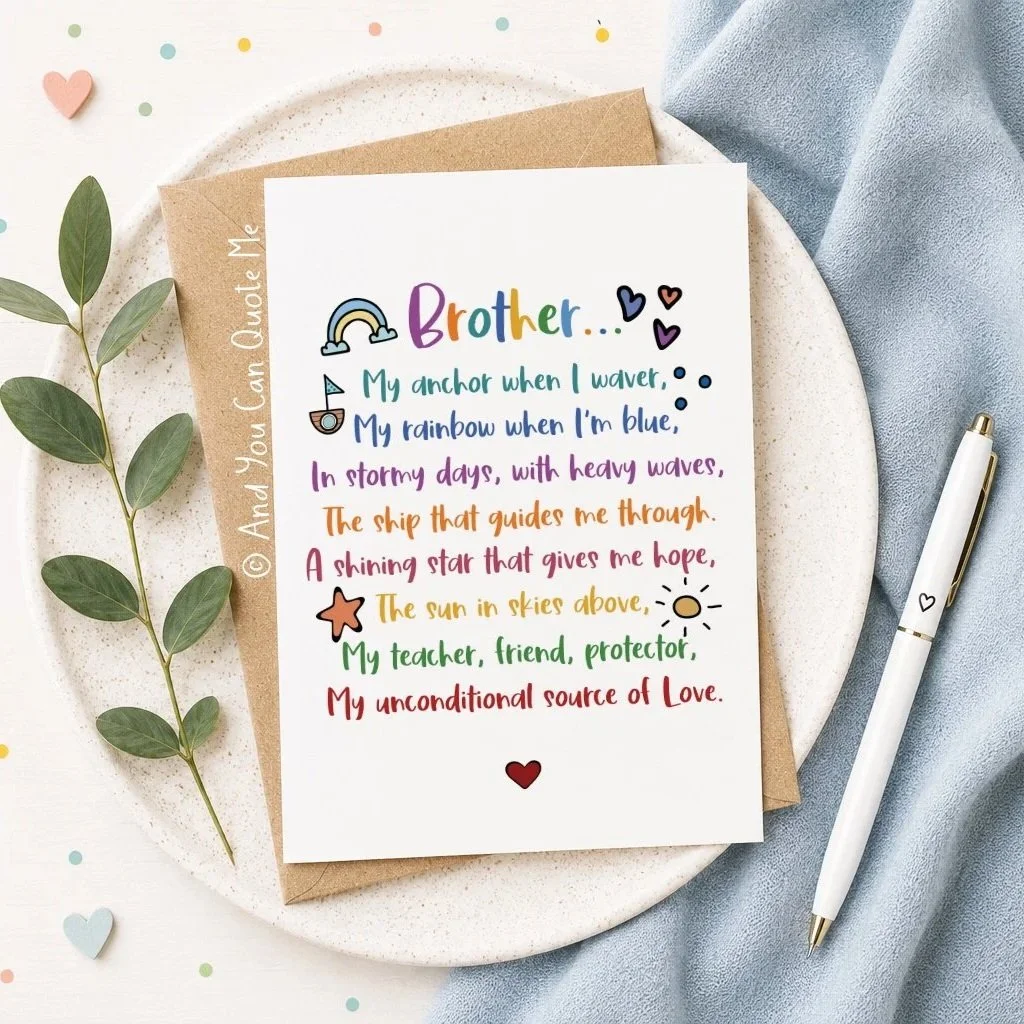 Brother...
My anchor when I waver,
My rainbow when I'm blue,
In stormy days, with heavy waves,
The ship that guides me through.
A shining star that gives me hope,
The sun in skies above,
My teacher, friend, protector,
My unconditional source of Love.
© And You Can Quote Me